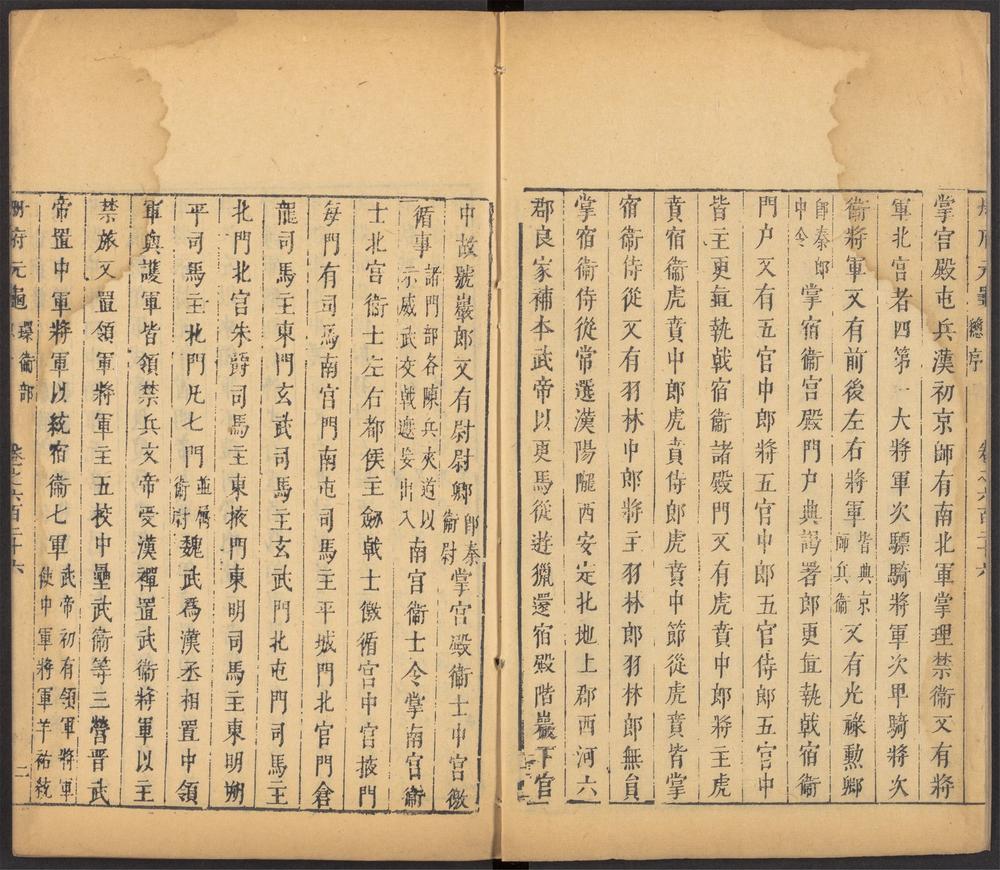 掌宮殿屯兵漢初京師有南北軍掌理禁衛又有將
軍北宮者四第一大將軍次驃騎將軍次車騎將次
衛將軍又有前後左右將軍皆典京師兵衛又有光祿勲卿
即秦郎中令掌宿衛宮殿門户典謁署郎更直執戟宿衛
門户又有五官中郎將五官中郎五官侍郎五官中
皆主更直執戟宿衛諸殿門又有虎賁中郎將主虎
賁宿衞虎賁中郎虎賁侍郎虎賁中節從虎賁皆掌
宿衛侍從又有羽林中郎將主羽林郎羽林郎無員
掌宿衛侍從常選漢陽隴西安定北地上郡西河六
郡良家補本武帝以更馬從遊獵還宿殿階巖下官
中故號巖郎又有尉尉卿即秦衛尉掌宮殿衛士中宮徼
循事諸門部各陳兵夾道以示威武交戟遮妄出入南宮衛士令掌南宮衞
士北宮衛士左右都侯主劔戟士徼循宮中宮掖門
每門有司馬南宮門南屯司馬主平城門北宮門倉
龍司馬主東門玄武司馬主玄武門北屯門司馬主
北門北宮朱爵司馬主東掖門東明司馬主東明朔
平司馬主北門凡七門並屬衛尉魏武爲漢丞相置中領
軍與護軍皆領禁兵文帝受漢禪置武衛將軍以主
禁旅又置領軍將軍主五校中壘武衛等三營晋武
帝置中軍將軍以統宿衛七軍武帝初有領軍將軍使中軍將軍羊祜統
册府元龜 環衛部 卷之六百二十六 二